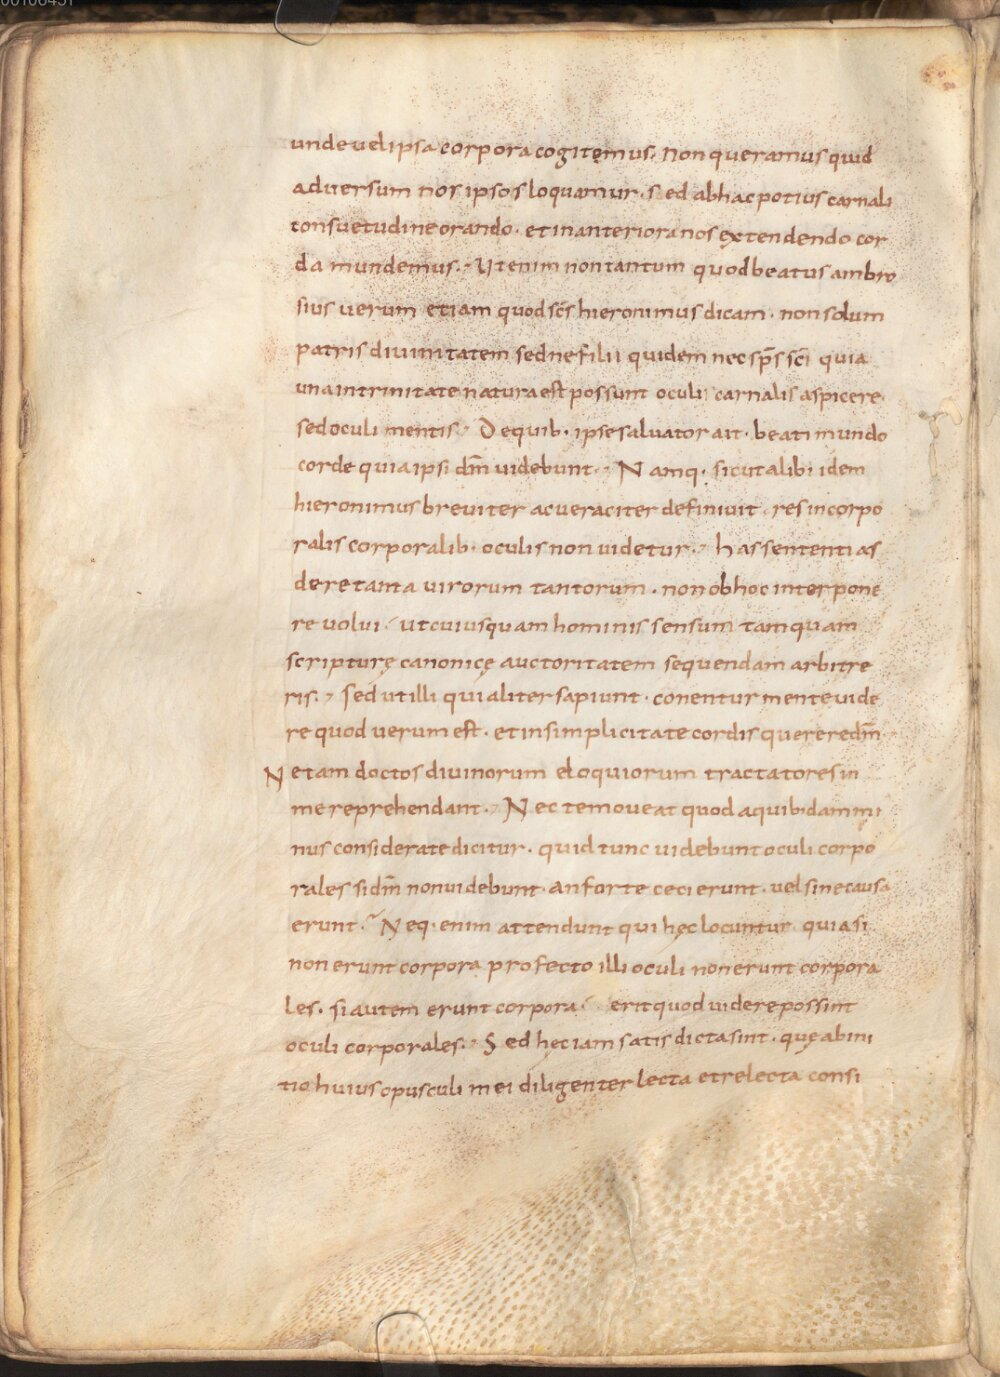 unde uel ipsa corpora cogitemus. Non queramus quid
aduersum nos ipsos loquamur. sed ab hac potius carnali
consuetudine orando. et in anteriora nos extendendo cor
da mundemus. Ut enim non tantum quod beatus ambro
sius uerum etiam quod scs hieronimus dicam. non solum
patris diuinitatem sed nefilii quidem nec sps sci quia
una in trinitate natura est possunt oculi carnalis aspicere.
sed oculi mentis. De quib. ipse saluator ait. beati mundo
corde quia ipsi dm uidebunt. Namq. sicut alibi idem
hieronimus breuiter ac ueraciter definiuit. res incorpo
ralis corporalib. oculis non uidetur. has sententias
de re tanta uirorum tantorum. non ob hoc interpone
re uolui ut cuiusquam hominis sensum tamquam
scripturę canonicę auctoritatem sequendam arbitre
ris. sed ut illi qui aliter sapiunt. conentur mente uide
re quod uerum est. et in simplicitate cordis querere dm
Ne tam doctos diuinorum eloquiorum tractatores in
me reprehendant. Nec te moueat quod a quibusdam mi
nus considerate dicitur. quid tunc uidebunt oculi corpo
rales si dm non uidebunt. an forte ceci erunt. uel sine causa
erunt. Neq. enim attendunt qui hęc locuntur quia si
non erunt corpora profecto illi oculi non erunt corpora
les. si autem erunt corpora erit quod uidere possint
oculi corporales. Sed hęc iam satis dicta sint. quę ab ini
tio huius opusculi mei diligenter lecta et relecta consi